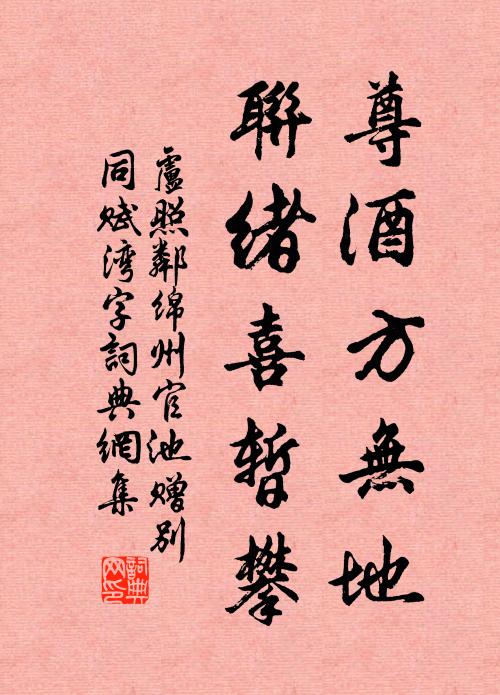 尊酒方無地
聯緒喜暫攀
盧照鄰綿州官池贈別
同賦湾字詞典網集
詞典网印